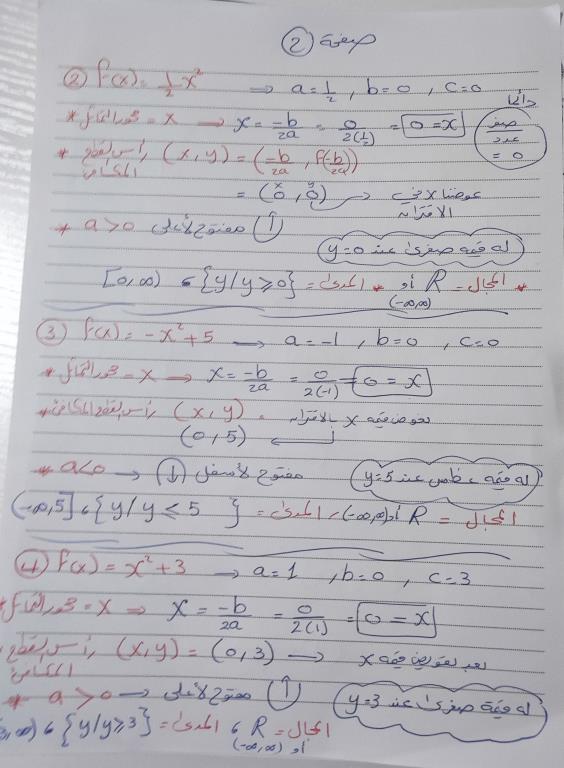 صفحة (2)
② f(x) = ½x² → a = ½ , b = 0 , c = 0
دائما
* محور التماثل = x → x = -b/2a = 0/2(½) = 0 = x
صفر/عدد = 0
* رأس القطع المكافئ (x, y) = (-b/2a , f(-b/2a))
= (0 , 0) ← عوضنا x في الاقتران
* a > 0 مفتوح لأعلى ↑
له قيمة صغرى عند y = 0
* المجال = R أو (-∞,∞) * المدى = {y / y ≥ 0} و [0, ∞)
③ f(x) = -x² + 5 → a = -1 , b = 0 , c = 0
* محور التماثل = x → x = -b/2a = 0/2(-1) = 0 = x
* رأس القطع المكافئ (x, y) = نعوض قيمة x بالاقتران
(0, 5)
* a < 0 → ↓ مفتوح لأسفل
له قيمة عظمى عند y = 5
المجال = R أو (-∞,∞) ، المدى = {y / y ≤ 5} و (-∞, 5]
④ f(x) = x² + 3 → a = 1 , b = 0 , c = 3
* محور التماثل = x → x = -b/2a = 0/2(1) = 0 = x
رأس القطع المكافئ (x, y) = (0, 3) → بعد تعويض قيمة x
* a > 0 → مفتوح لأعلى ↑
له قيمة صغرى عند y = 3
المجال = R أو (-∞,∞) و المدى = {y / y ≥ 3} و 3, ∞)